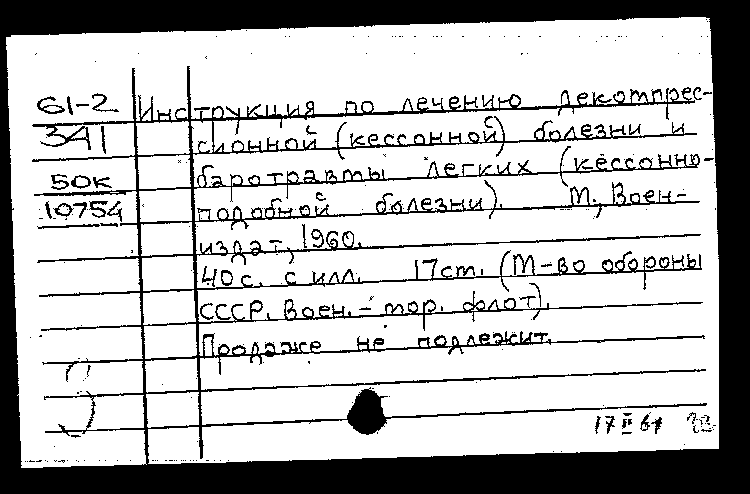 61-2 Инструкция по лечению декомпрес-
341 сионной (кессонной) болезни и
50к баротравмы легких (кессонно-
10754 подобной болезни). М., Воен-
издат, 1960.
40с. с илл. 17см. (М-во обороны
СССР. Воен.-мор. флот).
Продаже не подлежит.
17 II 61